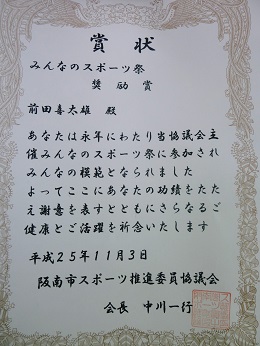 賞状
みんなのスポーツ祭
奨励賞
前田喜太雄 殿
あなたは永年にわたり当協議会主
催みんなのスポーツ祭に参加され
みんなの模範となられました
よってここにあなたの功績をたた
え謝意を表すとともにさらなるご
健康とご活躍を祈念いたします
平成25年11月3日
阪南市スポーツ推進委員協議会
会長 中川一行